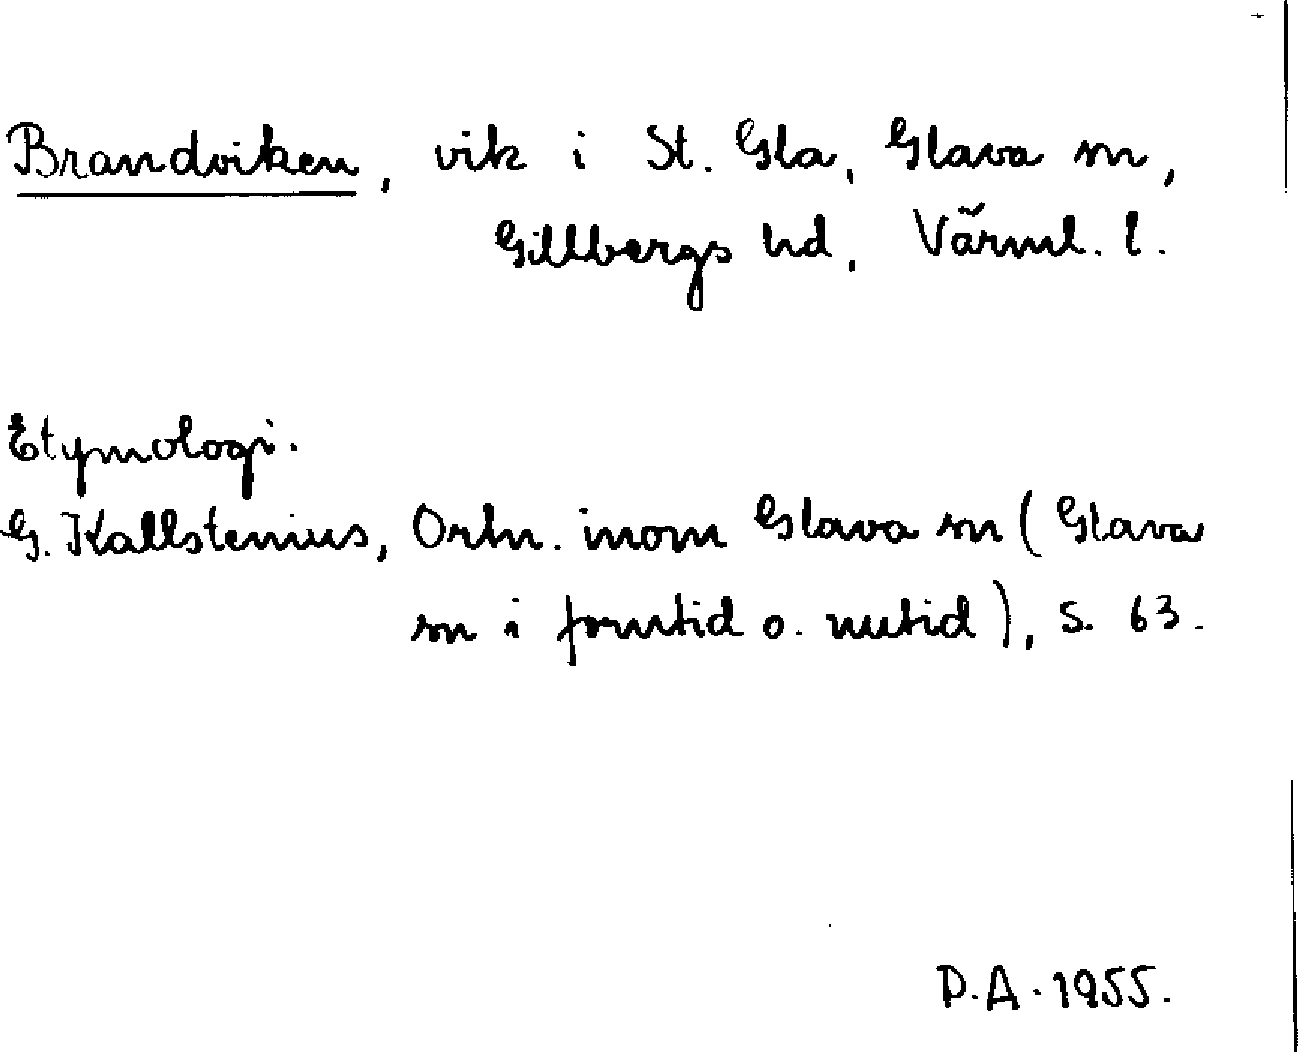 Brandviken, vik i St. Gla, Glava sn,
Gillbergs hd, Värml. l.
Etymologi.
G. Kallstenius, Ortn. inom Glava sn (Glava
sn i forntid o. nutid), s. 63.
P.A. 1955.